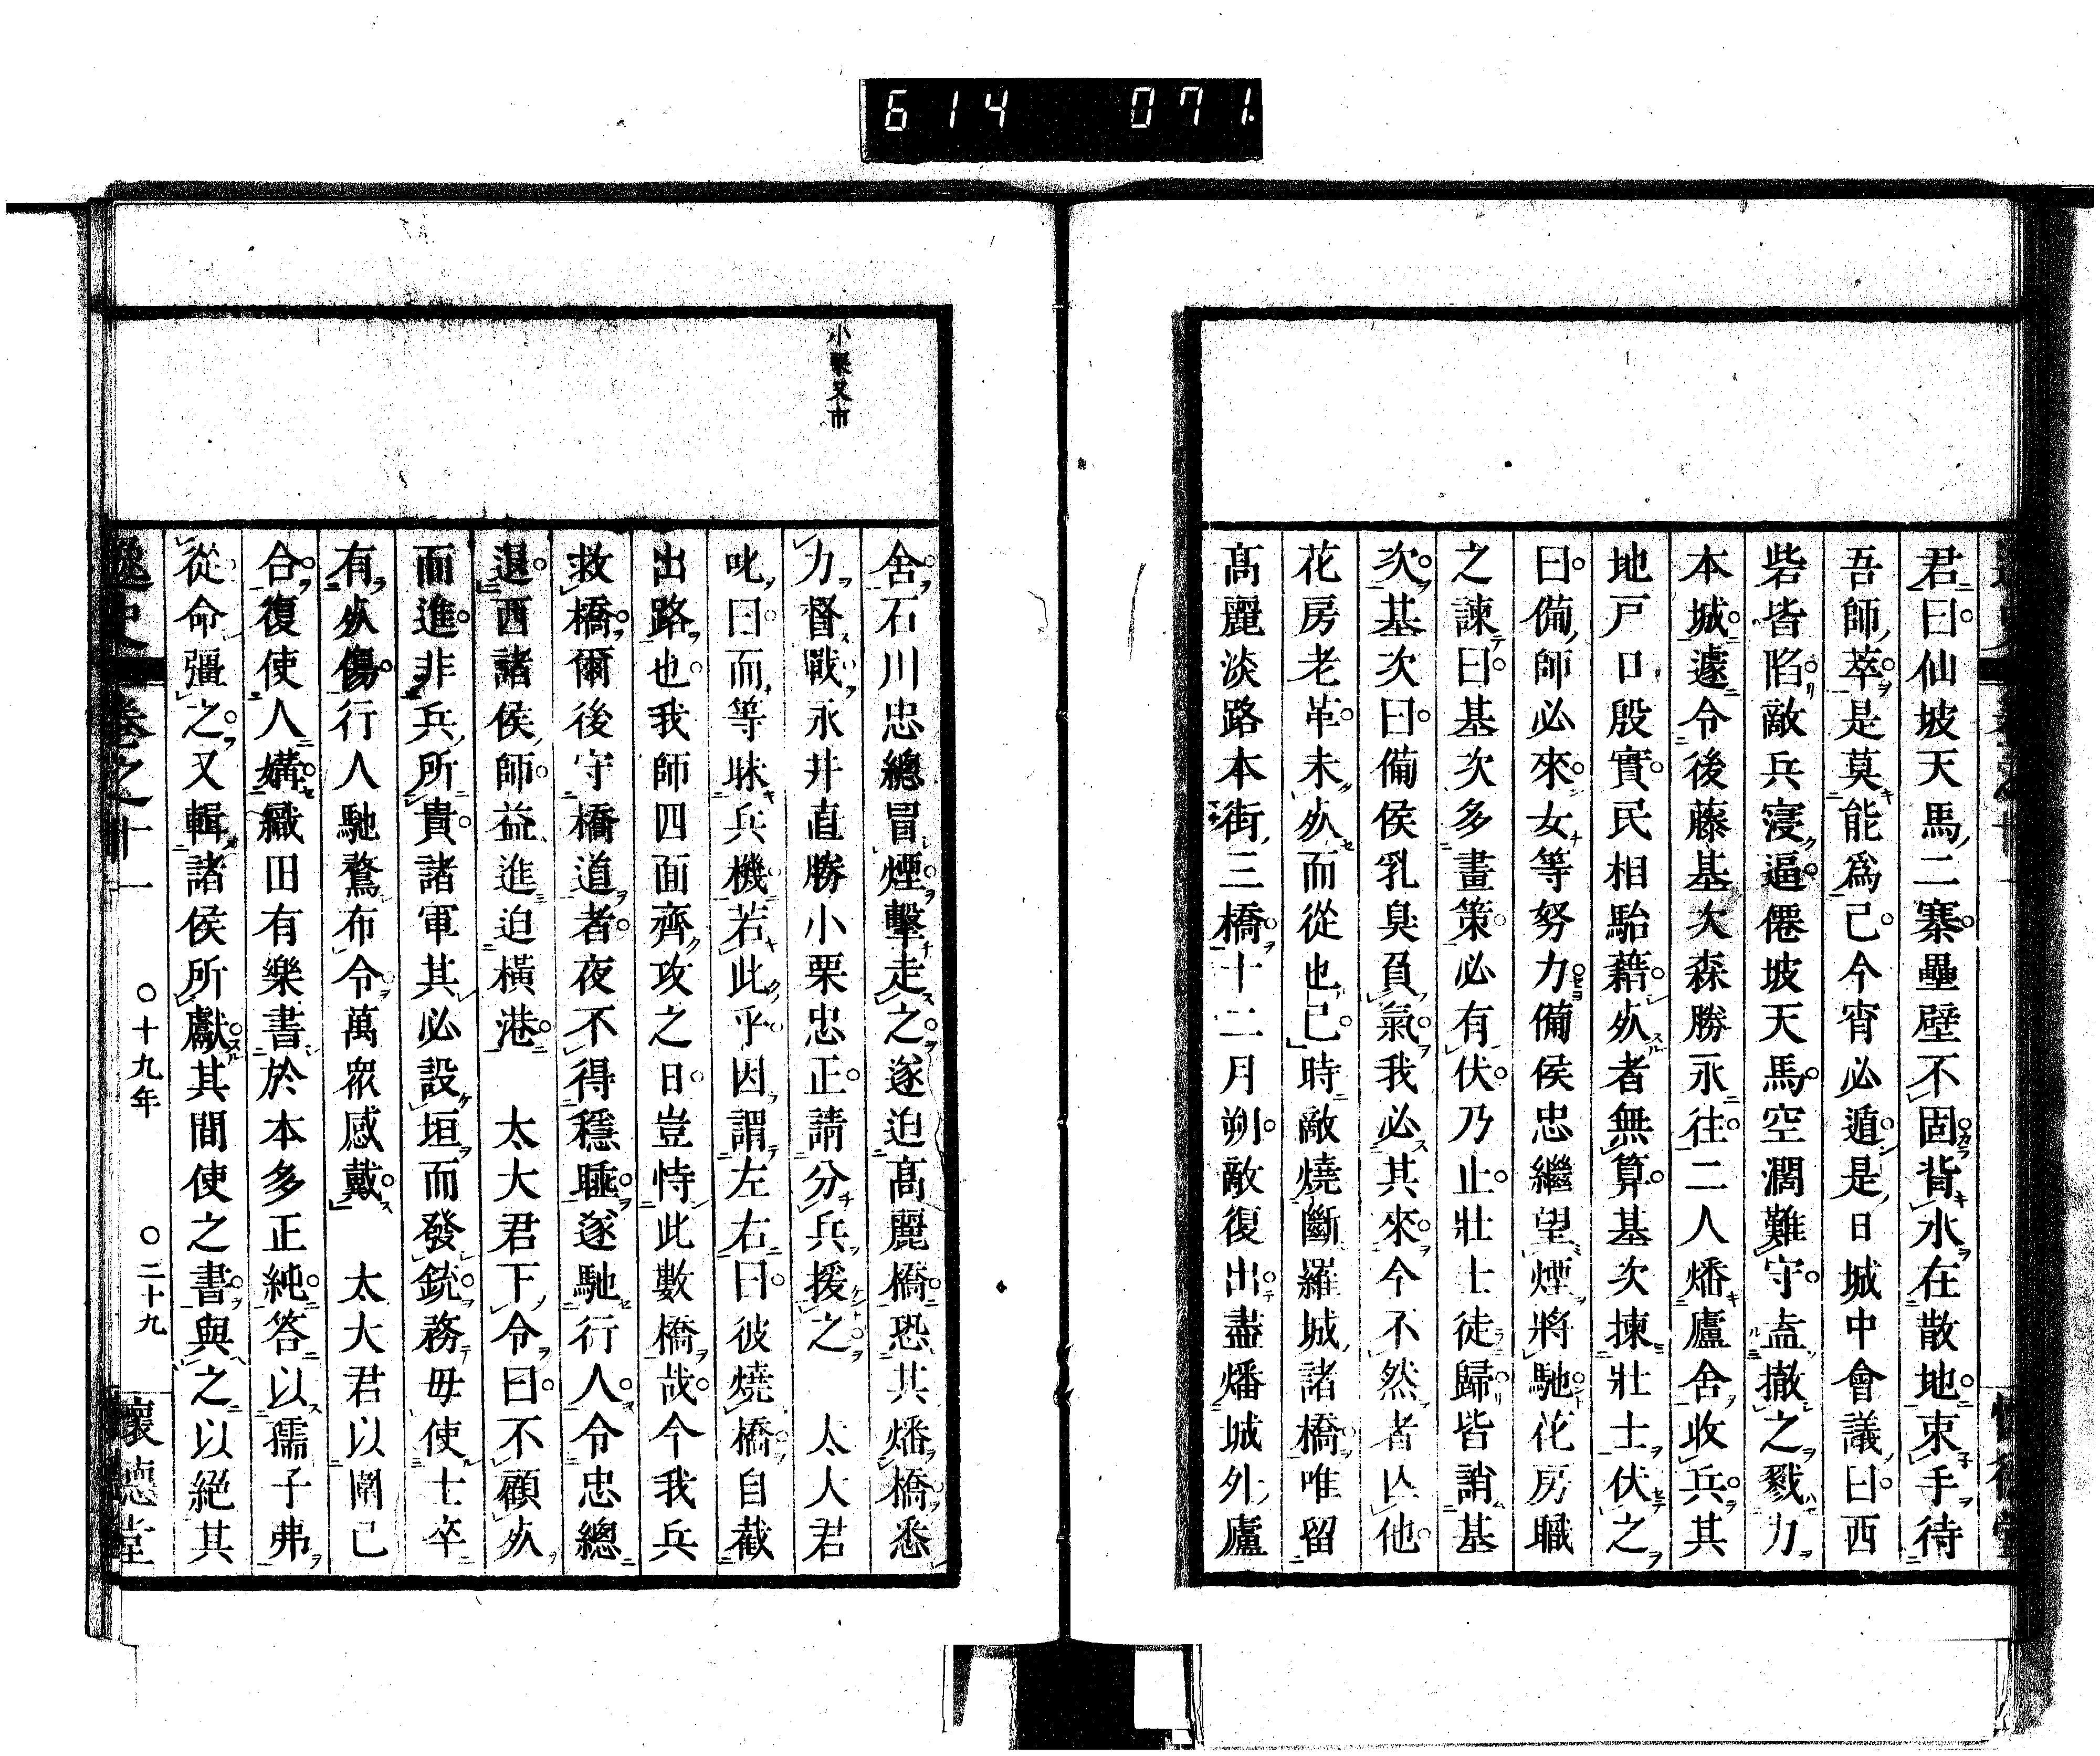 614 071
君曰仙坡天馬二寨壘壁不固背水在散地束手待
吾師萃是莫能爲已今宵必遁是日城中會議曰西
砦皆陷敵兵寖逼僊坡天馬空濶難守盍撤之戮力
本城遽令後藤基次森勝永往二人燔廬舍收兵其
地戸口殷實民相駘藉歿者無算基次揀壯士伏之
曰備師必來女等努力備侯忠繼望煙將馳花房職
之諫曰基次多畫策必有伏乃止壯士徒歸皆誚基
次基次曰備侯乳臭負氣我必其來今不然者亾他
花房老革未歿而從也已時敵燒斷羅城諸橋唯留
髙麗淡路本街三橋十二月朔敵復出盡燔城外廬
小栗又市
舍石川忠總冒煙擊走之遂迫髙麗橋恐其燔橋悉
力督戰永井直勝小栗忠正請分兵援之　太大君
叱曰而等昧兵機若此乎因謂左右曰彼燒橋自截
出路也我師四面齊攻之日豈恃此數橋哉今我兵
救橋爾後守橋道者夜不得穩睡遂馳行人令忠總
退西諸侯師益進迫橫港　太大君下令曰不顧歿
而進非兵所貴諸軍其必設垣而發銃務毋使士卒
有歿傷行人馳騖布令萬衆感戴　太大君以圍已
合復使人媾織田有樂書於本多正純答以孺子弗
從命彊之又輯諸侯所獻其間使之書與之以絕其
逸史 卷之十一 ○十九年 ○二十九 懷德堂